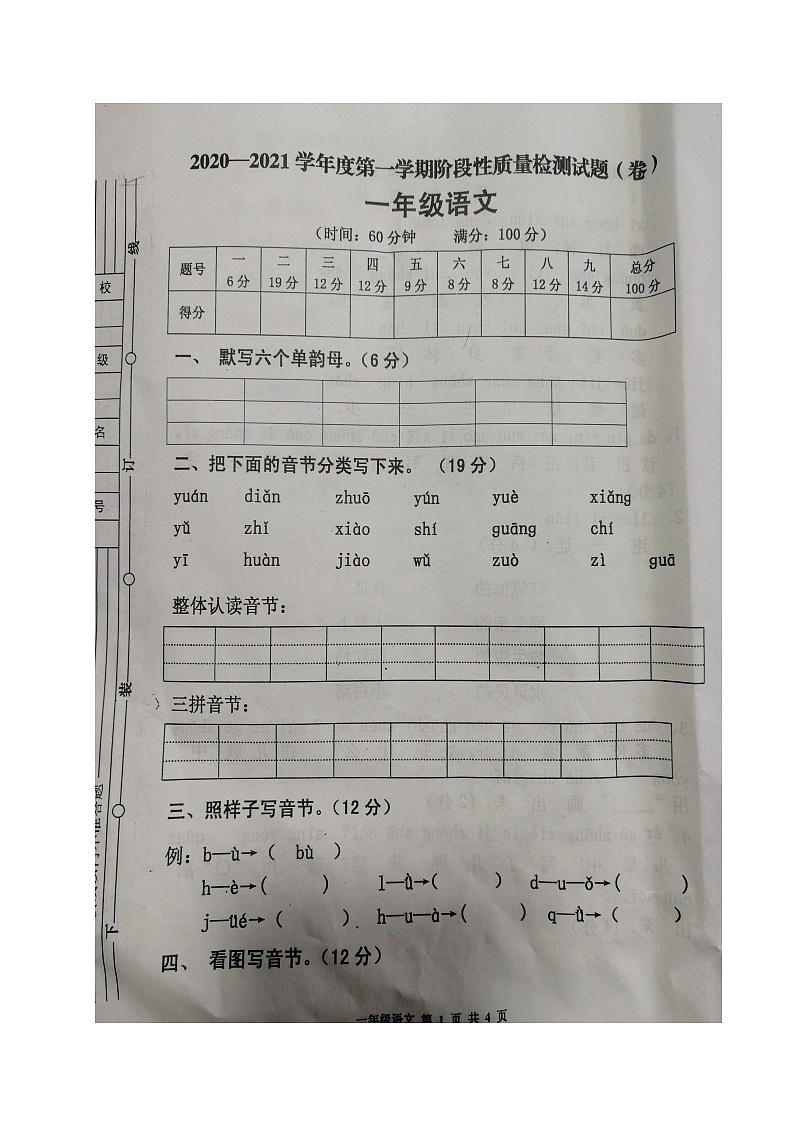 2020—2021学年度第一学期阶段性质量检测试题（卷）
一年级语文
（时间：60分钟 满分：100分）
题号 一 6分 二 19分 三 12分 四 12分 五 9分 六 8分 七 8分 八 12分 九 14分 总分 100分
得分
一、 默写六个单韵母。（6分）
二、把下面的音节分类写下来。 （19分）
yuán diǎn zhuō yún yuè xiǎng
yǔ zhǐ xiào shí guāng chí
yī huàn jiào wǔ zuò zì guā
整体认读音节：
三拼音节：
三、照样子写音节。（12分）
例：b—ù→（ bù ）
h—è→( ) l—ǜ→( ) d—u—ǒ→( )
j—üé→( ) h—u—à→( ) q—ǜ→( )
四、 看图写音节。（12分）
一年级语文 第1页 共4页
校
级
名
号
线
订
装
下